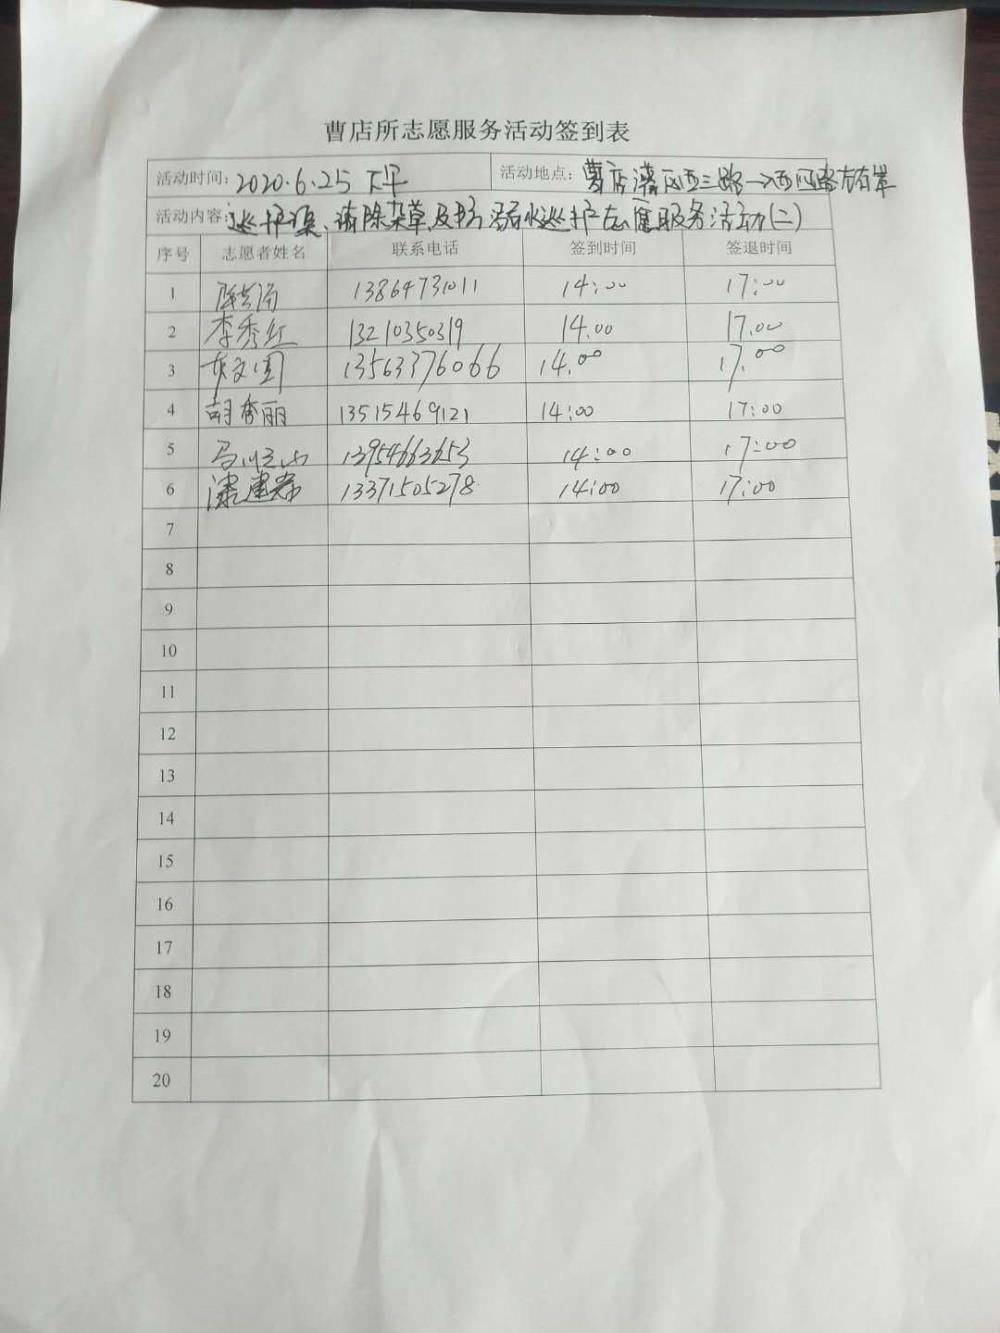 曹店所志愿服务活动签到表
活动时间: 2020.6.25 下午 活动地点: 曹店灌区西三路→西四路左右岸
活动内容: 巡护渠、清除杂草及防溺水巡护志愿服务活动(二)
序号 志愿者姓名 联系电话 签到时间 签退时间
1 13864731011 14:00 17:00
2 李秀红 13210350319 14.00 17.00
3 13563376066 14.00 17.00
4 胡秀丽 13515469121 14:00 17:00
5 13954663653 14:00 17:00
6 13371505278 14:00 17:00
7
8
9
10
11
12
13
14
15
16
17
18
19
20